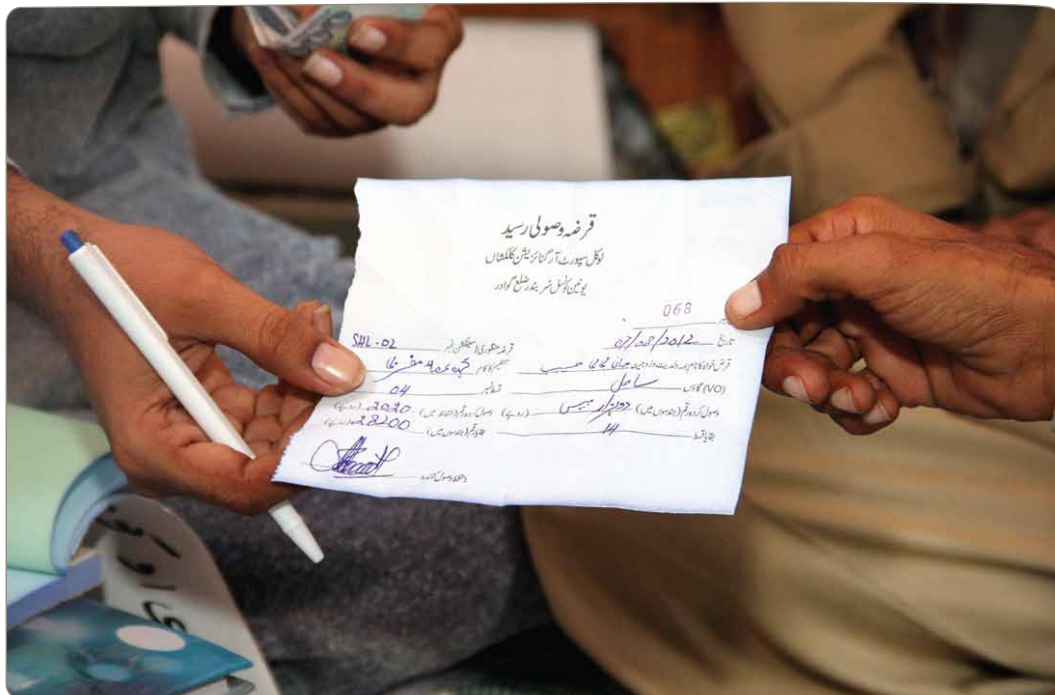 قرضہ وصولی رسید
لوکل سپورٹ آرگنائزیشن کلکشاں
یونین کونسل سر بندر ضلع گوادر
068
تاریخ 07/08/2012 قرضہ منظوری / سینکشن نمبر SHL-02
قرض خواہ کا نام بمعہ ولدیت / زوجیت حبیب تنظیم کا نام
(VO) گاؤں ساحل قسط نمبر 04
وصول کردہ رقم (ہندسوں میں) دو ہزار بیس (روپے) وصول کردہ رقم (الفاظ میں) 2020 (روپے)
بقایا قسط 14 بقایا رقم (ہندسوں میں) 28200 (روپے)
دستخط وصول کنندہ